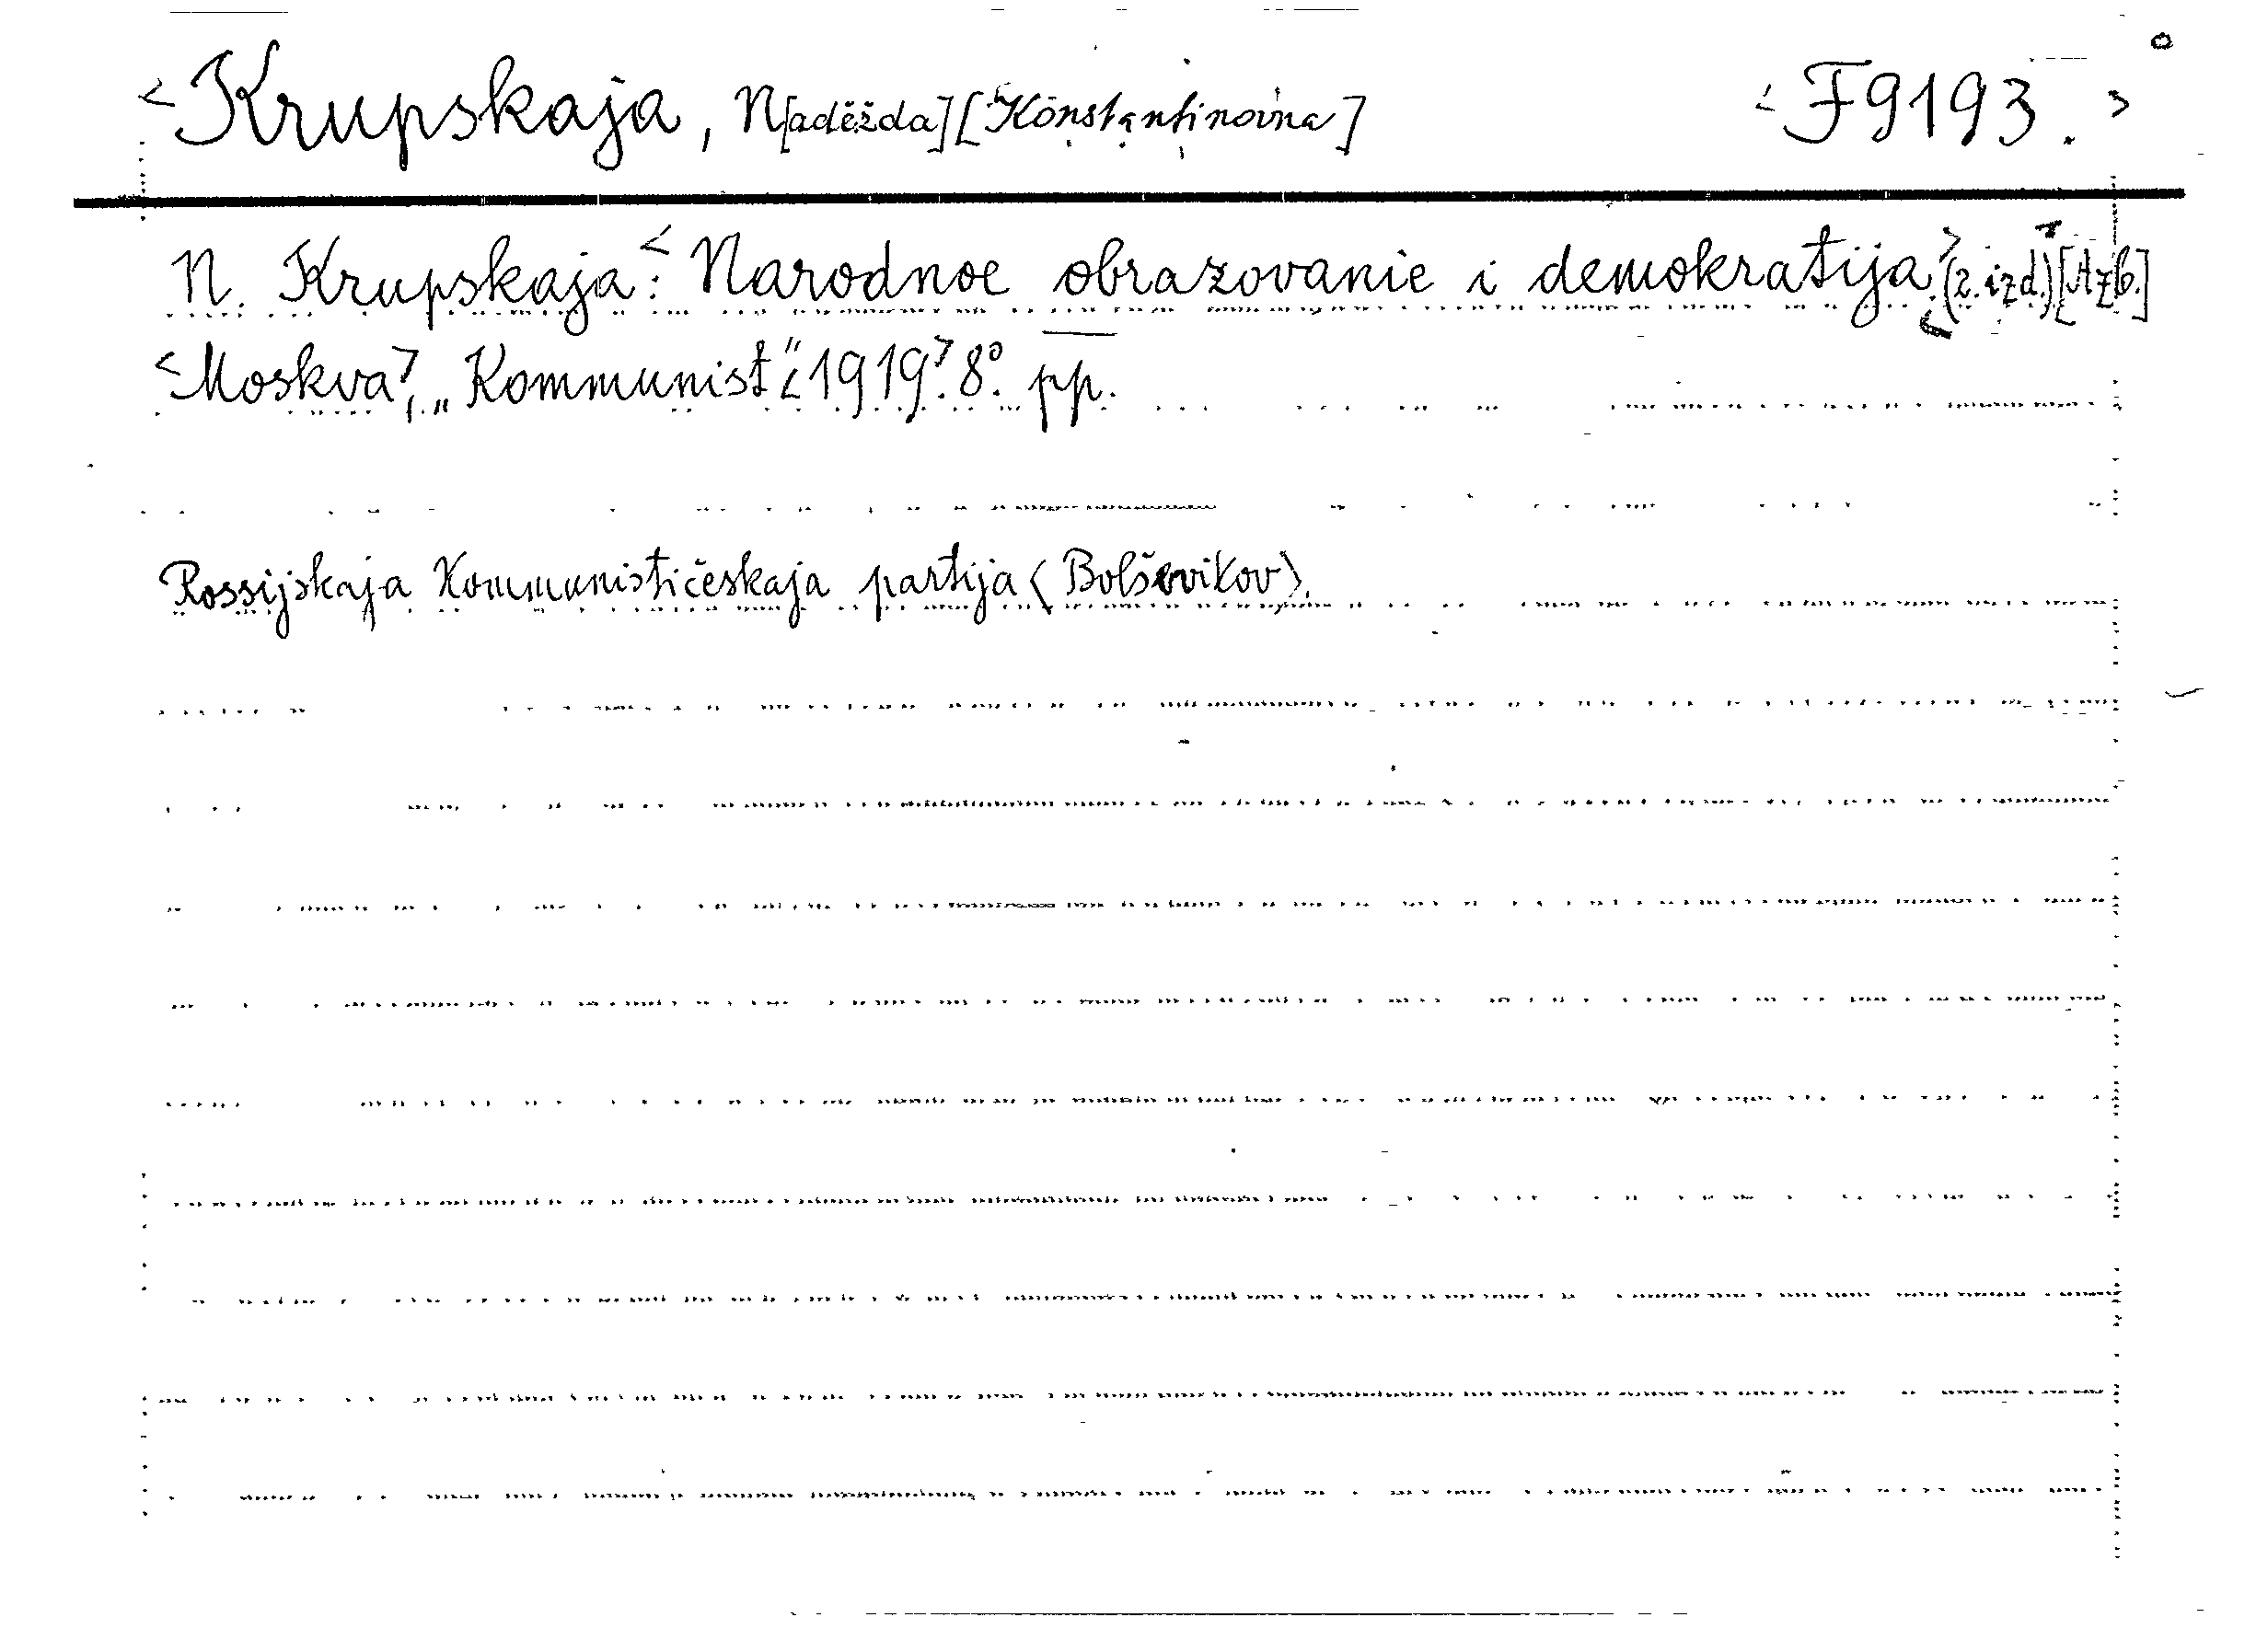 <Krupskaja, N[aděžda] [Konstantinovna] <F9193.>
N. Krupskaja: <Narodnoe obrazovanie i demokratija.> (2. izd.) [Azb.]
<Moskva>, „Kommunist“ <1919>. 8°. pp.
Rossijskaja Kommunističeskaja partija (Bolševikov).